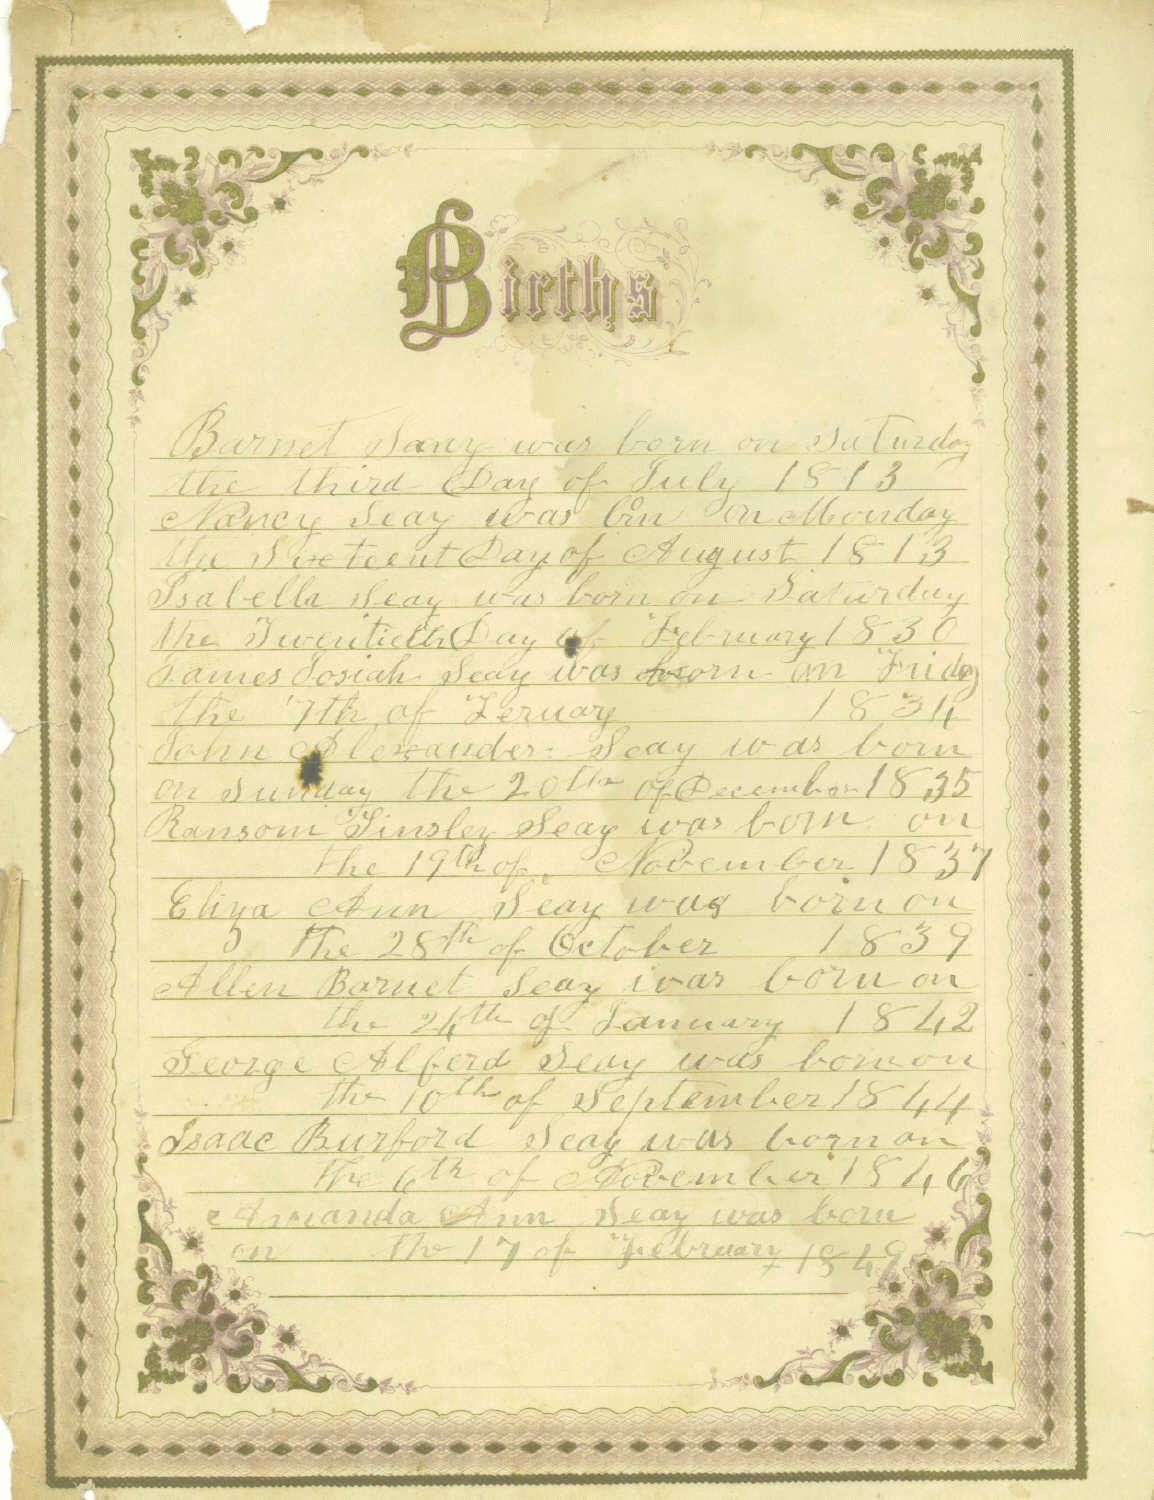 Births
Barnet Seay was born on Saturday
the third Day of July 1813
Nancy Seay was brn on Monday
the Sixteent Day of August 1813
Isabella Seay was born on Saturday
the Twentieth Day of February 1830
James Josiah Seay was born on Friday
the 7th of Feruary 1834
John Alexander Seay was born
on Sunday the 20th of December 1835
Ransom Tinsley Seay was born on
the 19th of November 1837
Eliza Ann Seay was born on
the 28th of October 1839
Allen Barnet Seay was born on
the 24th of January 1842
George Alferd Seay was born on
the 10th of September 1844
Isaac Burford Seay was born on
the 6th of November 1846
Amanda Ann Seay was born
on the 17 of February 1849